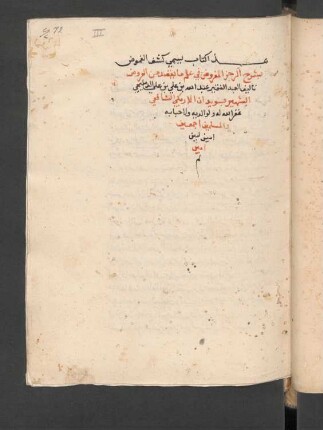 هذا كتاب يسمى كشف الغموض
بشرح الرجز المفروض في علم ما يقصد من العروض
تاليف العبد الفقير عبد الله بن علي بن علي
الشهير بسويدان الشافعي
غفر الله له ولوالديه ولاحبابه
والمسلمين اجمعين
امين امين
امين
م
III